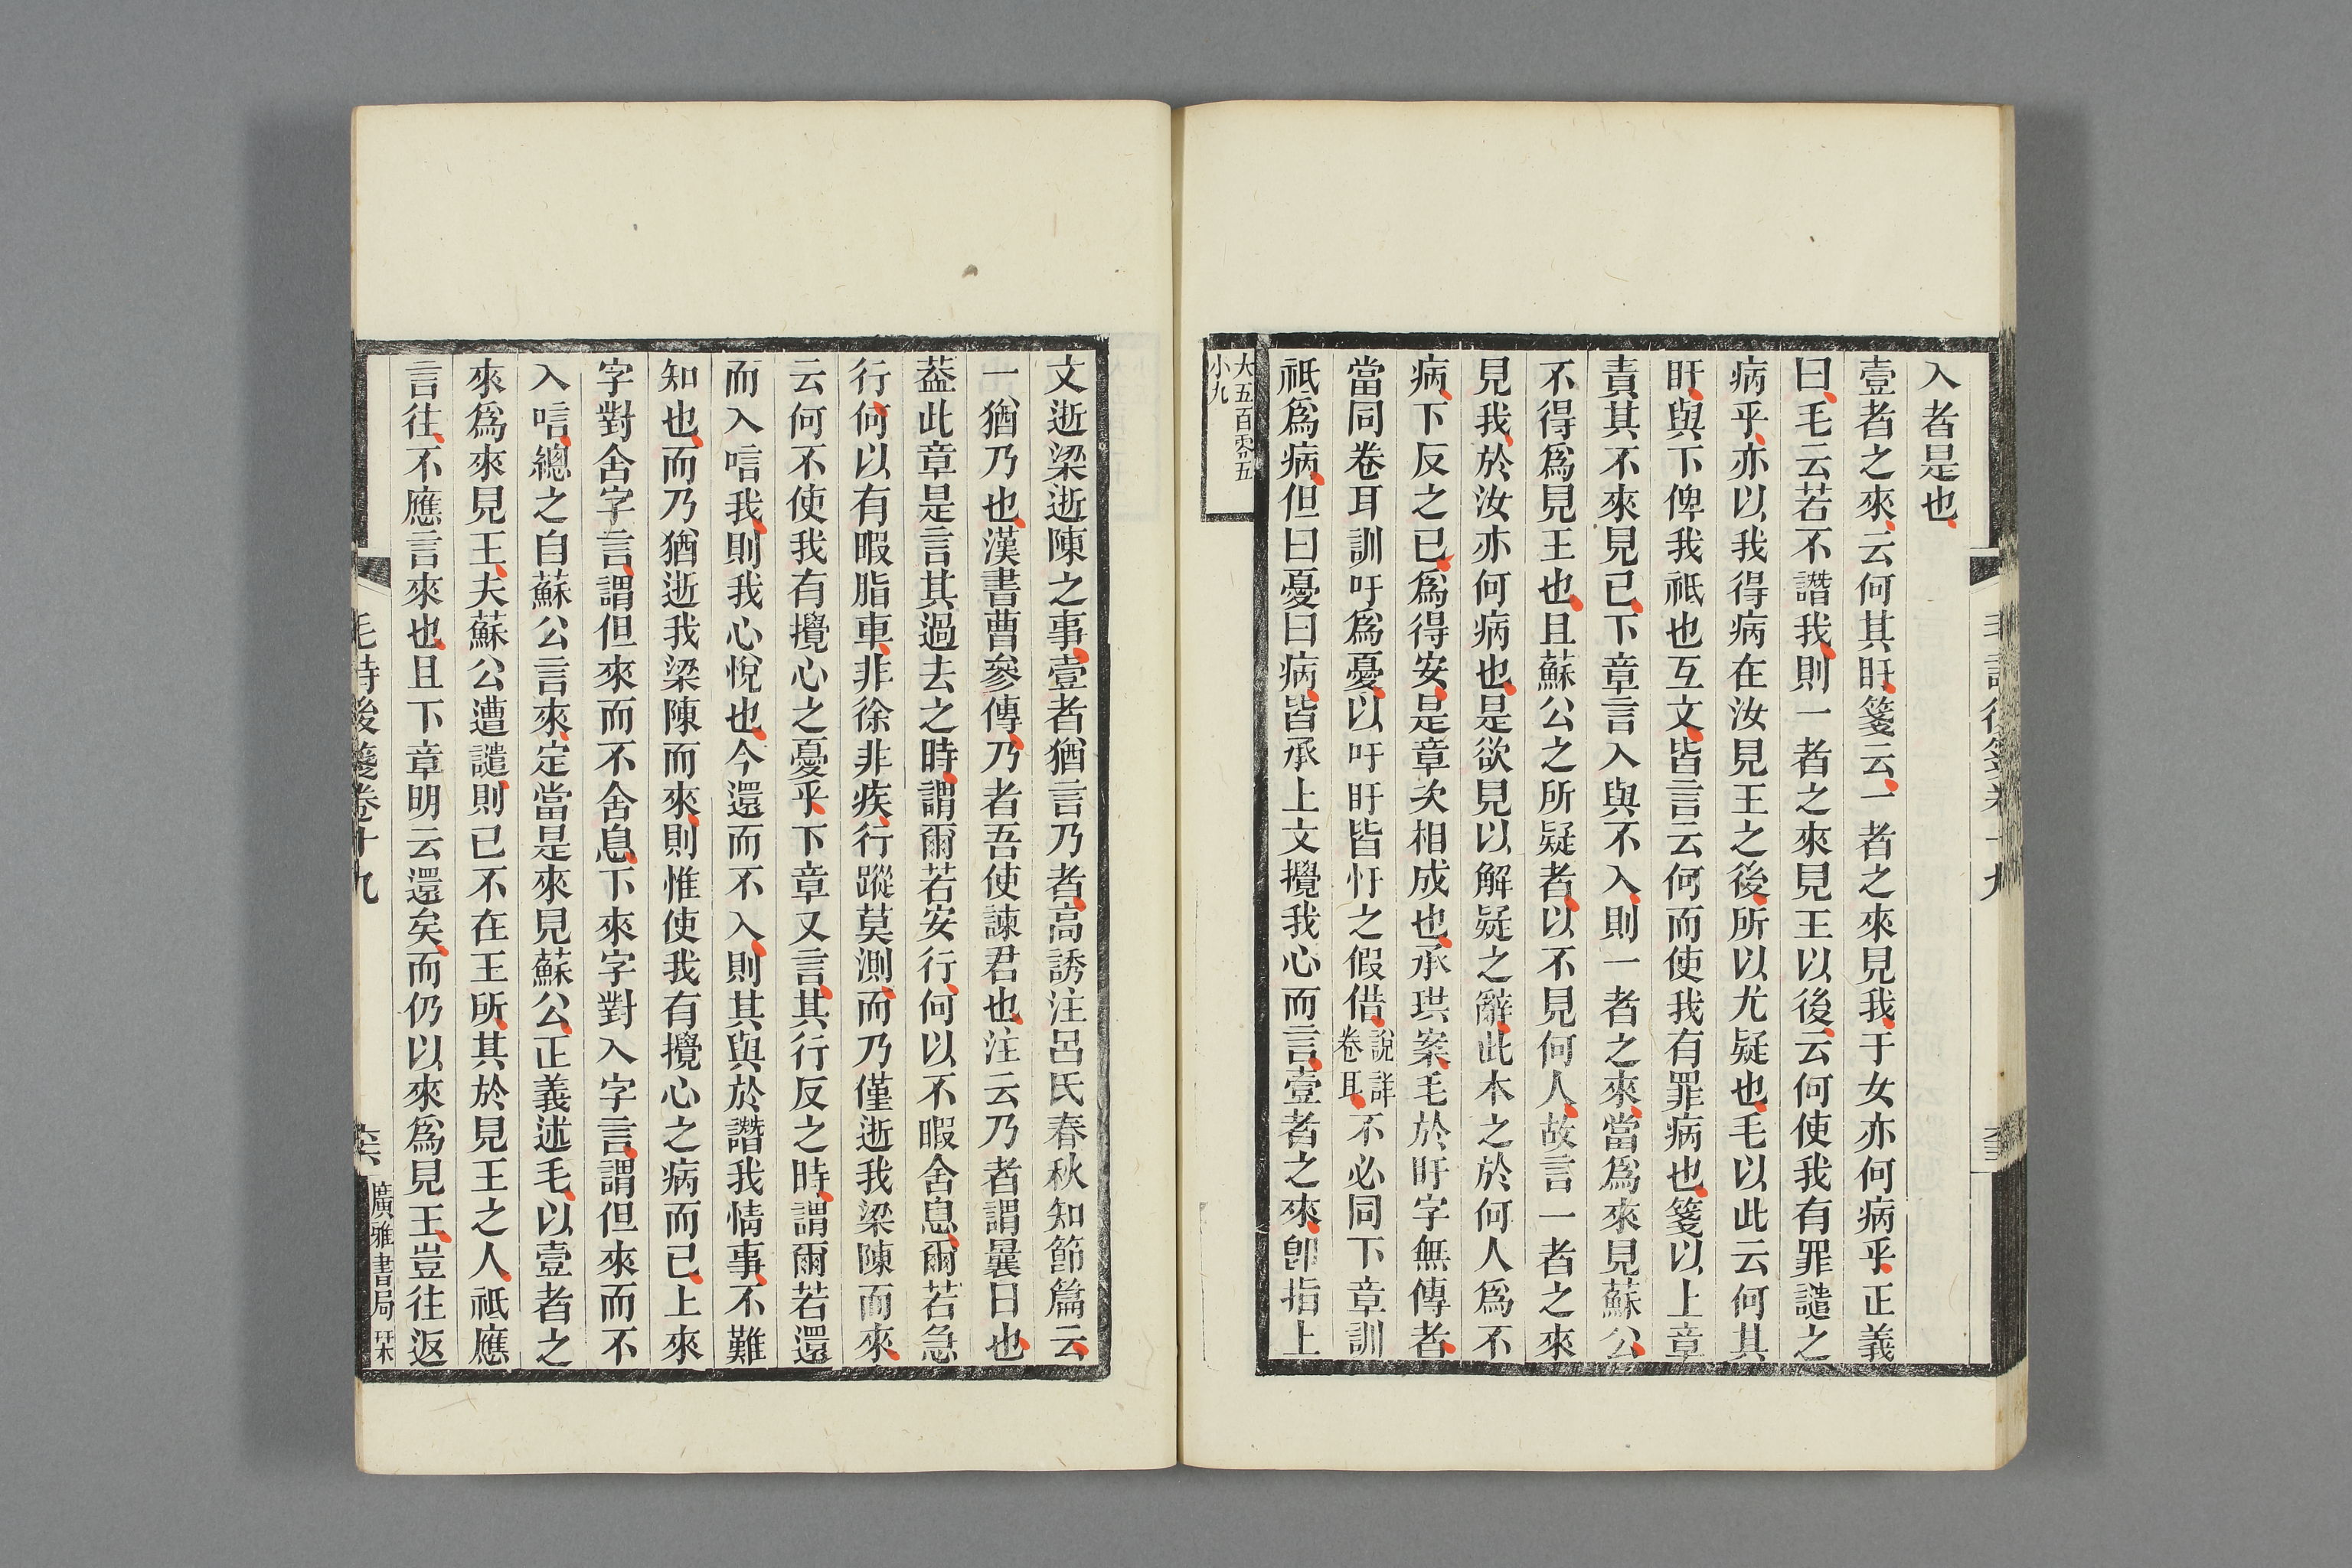 入者是也
壹者之來云何其盱箋云一者之來見我于女亦何病乎正義
曰毛云若不譖我則一者之來見王以後云何使我有罪譴之
病乎亦以我得病在汝見王之後所以尤疑也毛以此云何其
盱與下俾我祇也互文皆言云何而使我有罪病也箋以上章
責其不來見已下章言入與不入則一者之來當爲來見蘇公
不得爲見王也且蘇公之所疑者以不見何人故言一者之來
見我於汝亦何病也是欲見以解疑之辭此本之於何人爲不
病下反之已爲得安是章次相成也承珙案毛於盱字無傳者
當同卷耳訓吁爲憂以吁盱皆忬之假借說詳卷耳不必同下章訓
祇爲病但曰憂曰病皆承上文攪我心而言壹者之來卽指上
大五百零五
小九
文逝梁逝陳之事壹者猶言乃者高誘注呂氏春秋知節篇云
一猶乃也漢書曹參傳乃者吾使諫君也注云乃者謂曩日也
葢此章是言其過去之時謂爾若安行何以不暇舍息爾若急
行何以有暇脂車非徐非疾行蹤莫測而乃僅逝我梁陳而來
云何不使我有攪心之憂乎下章又言其行反之時謂爾若還
而入唁我則我心悅也今還而不入則其與於譖我情事不難
知也而乃猶逝我梁陳而來則惟使我有攪心之病而已上來
字對舍字言謂但來而不舍息下來字對入字言謂但來而不
入唁總之自蘇公言來定當是來見蘇公正義述毛以壹者之
來爲來見王夫蘇公遭譴則已不在王所其於見王之人祇應
言往不應言來也且下章明云還矣而仍以來爲見王豈往返
毛詩後箋卷十九
六
廣雅書局栞